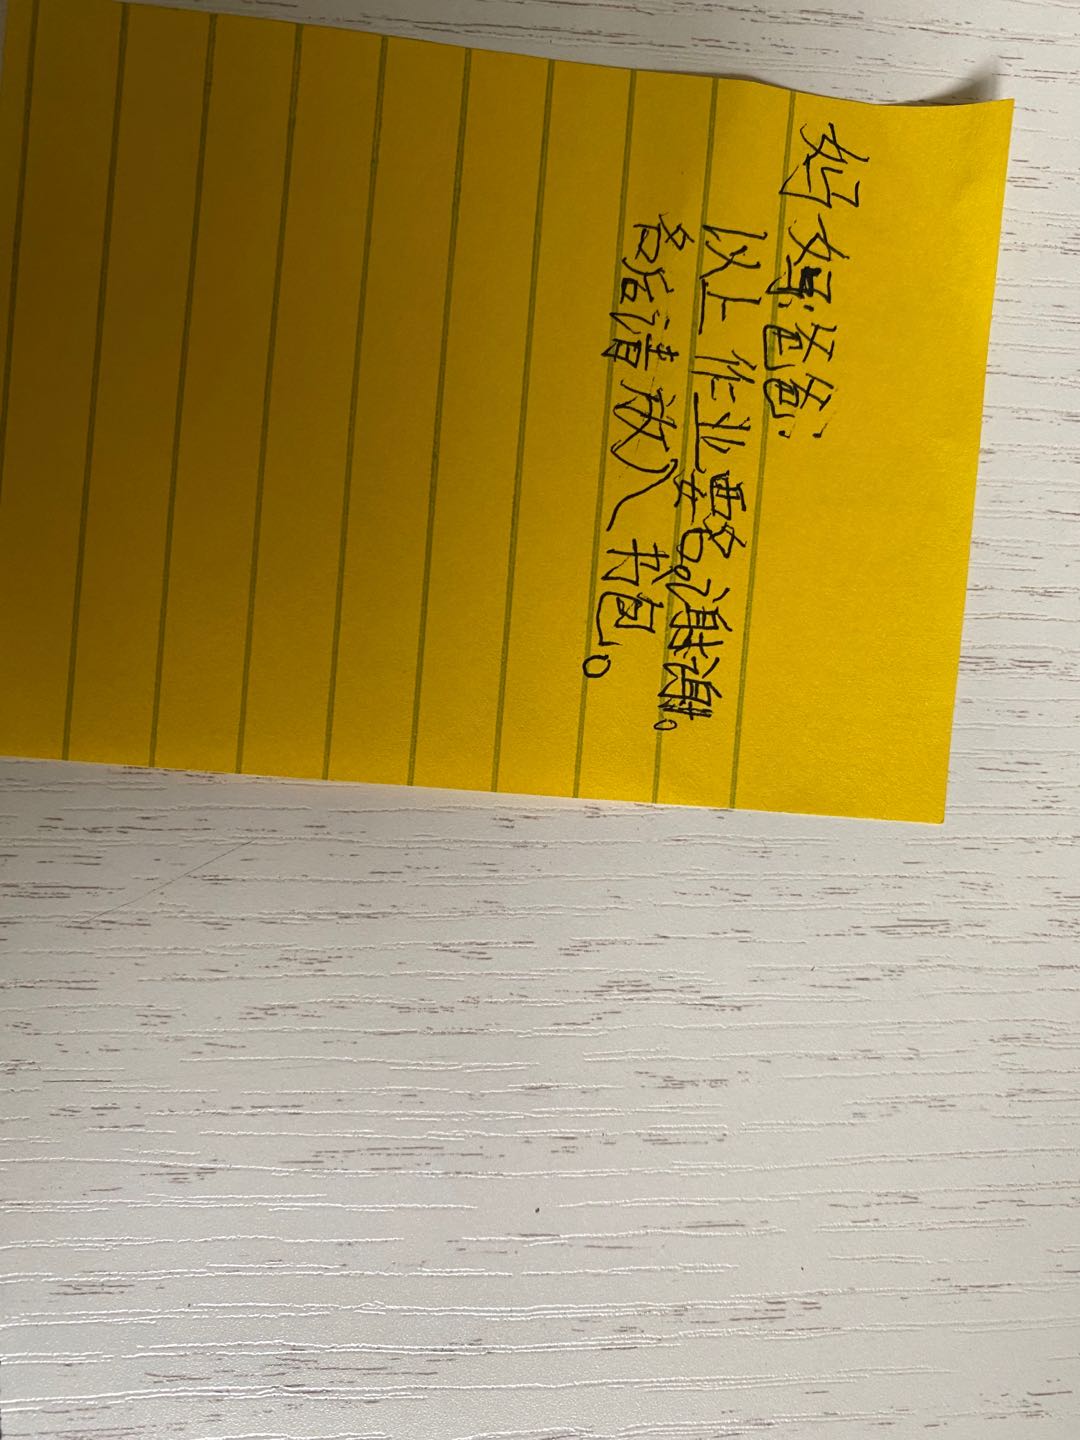 妈妈:爸爸:
以上作业要名。谢谢。
名后请放入书包。